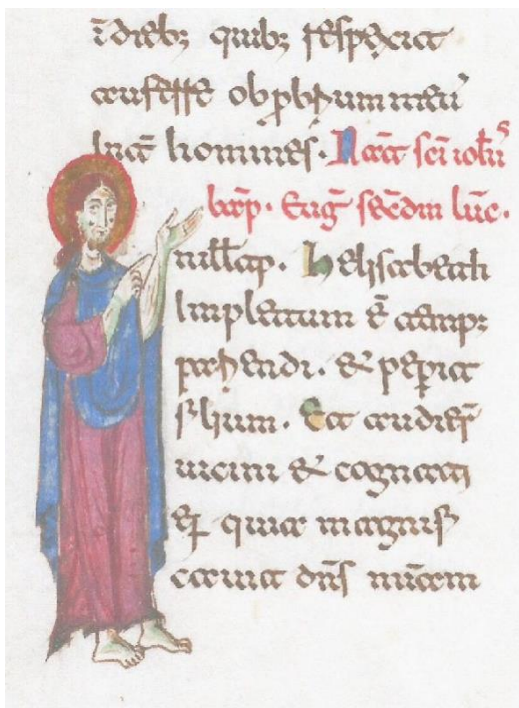 īdieb; quib; respexit
auferre obꝓbrium meū
int̄ homines. Nat̄ sc̄i ioh̄
bap̄. Eug̅ sec̄dm luc̄.
Helisabeth
Impletum ē temp;
pariendi. & peperit
filium. Et audier̄
uicini & cognati
ei quia magnifi
cauit dn̄s mīam